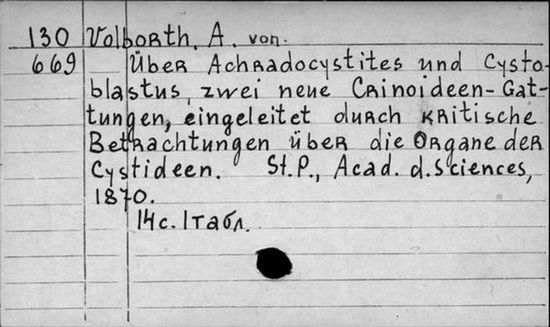 130 Volborth, A. von.
669 Über Achradocystites und Cysto-
blastus, zwei neue Crinoideen-Gat-
tungen, eingeleitet durch kritische
Betrachtungen über die Organe der
Cystideen. St.P., Acad. d. Sciences,
1870.
14 с. 1 табл.